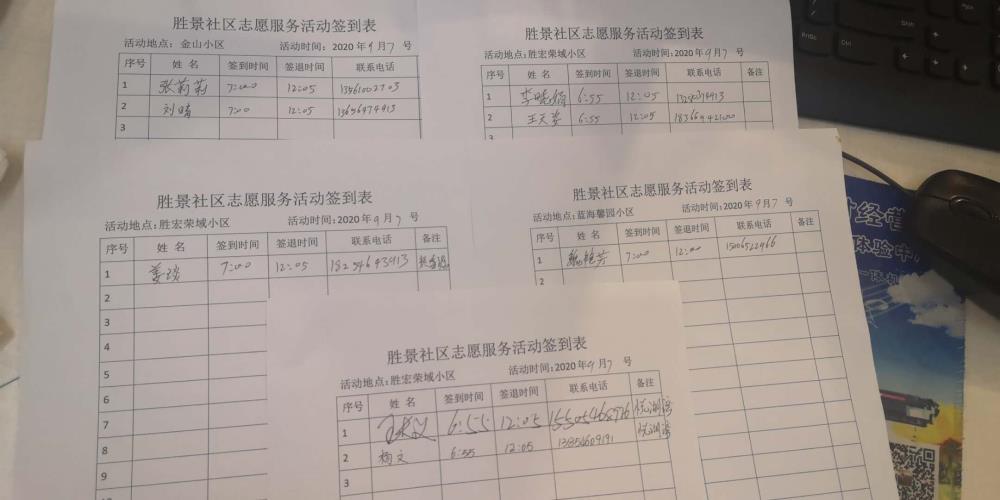 胜景社区志愿服务活动签到表
活动地点：金山小区 活动时间：2020年9月7号
序号 姓名 签到时间 签退时间 联系电话
1 张莉莉 7:00 12:05
2 刘晴 7:00 12:05 13656474913
3
胜景社区志愿服务活动签到表
活动地点:胜宏荣域小区 活动时间:2020年9月7号
序号 姓名 签到时间 签退时间 联系电话 备注
1 李晓娟 6:55 12:05
2 王天姿 6:55 12:05
胜景社区志愿服务活动签到表
活动地点:胜宏荣域小区 活动时间:2020年9月7号
序号 姓名 签到时间 签退时间 联系电话 备注
1 姜琰 7:00 12:05 18254643913
2
3
4
5
6
7
8
9
胜景社区志愿服务活动签到表
活动地点:蓝海馨园小区 活动时间:2020年9月7号
序号 姓名 签到时间 签退时间 联系电话 备注
1 魏艳芳 7:00 12:00 15006522466
2
胜景社区志愿服务活动签到表
活动地点:胜宏荣域小区 活动时间:2020年9月7号
序号 姓名 签到时间 签退时间 联系电话 备注
1 6:55 12:05
2 杨文 6:55 12:05
3
经营
体验中
一体机
PrtSc
Ctrl